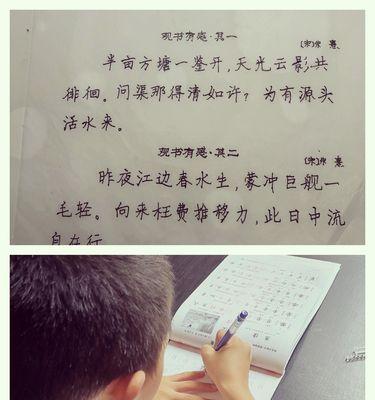 观书有感·其一
〔宋〕朱 熹
半亩方塘一鉴开，天光云影共
徘徊。问渠那得清如许？为有源头
活水来。
观书有感·其二
〔宋〕朱 熹
昨夜江边春水生，蒙冲巨舰一
毛轻。向来枉费推移力，此日中流
自在行